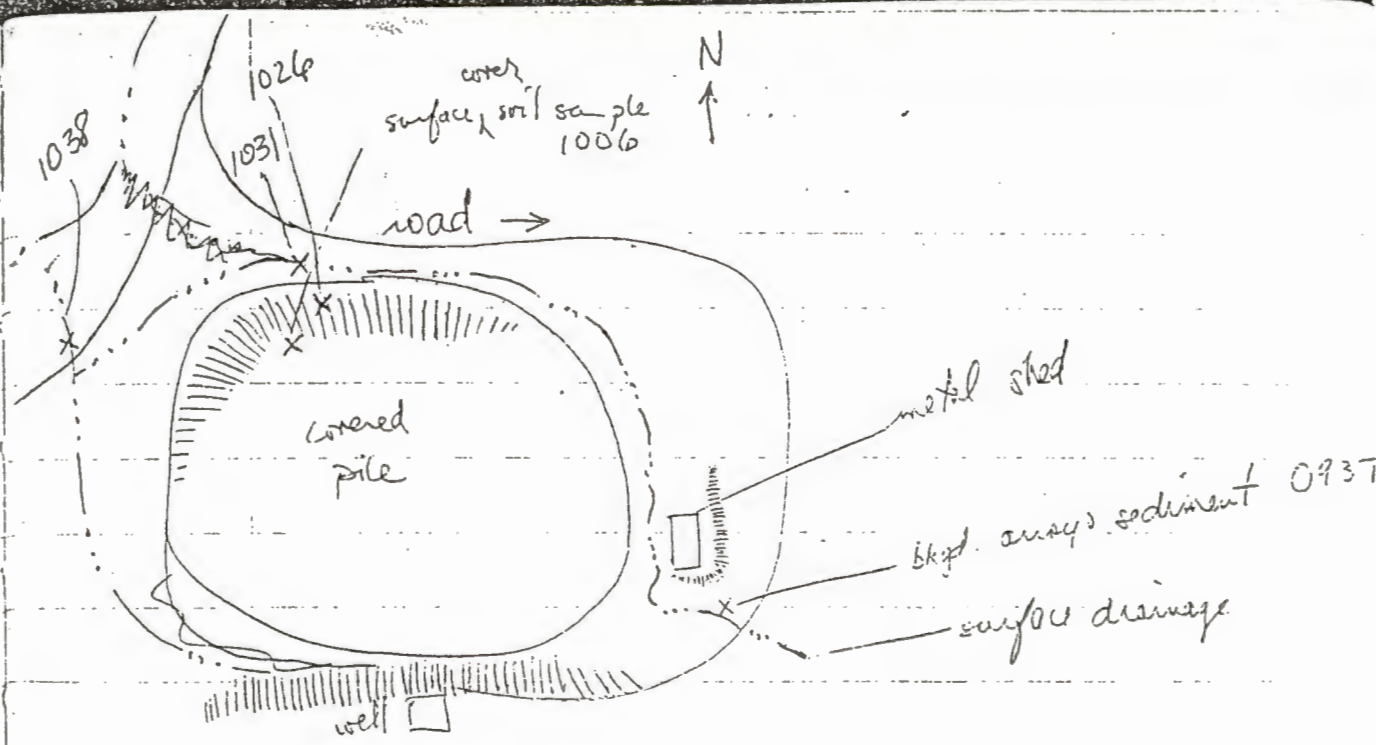 1026
cover
surface, soil sample
1006
N
1038
1031
road
covered
pile
metal shed
bkgd. arroyo sediment 0937
surface drainage
well